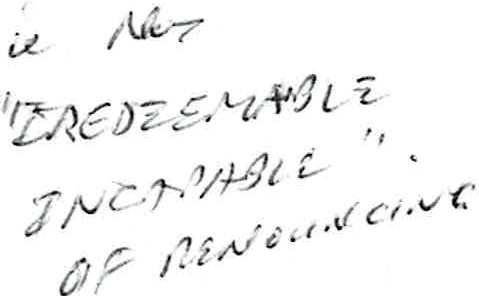 is
"IREDEEMABLE
INCAPABLE".
OF RENOUNCING